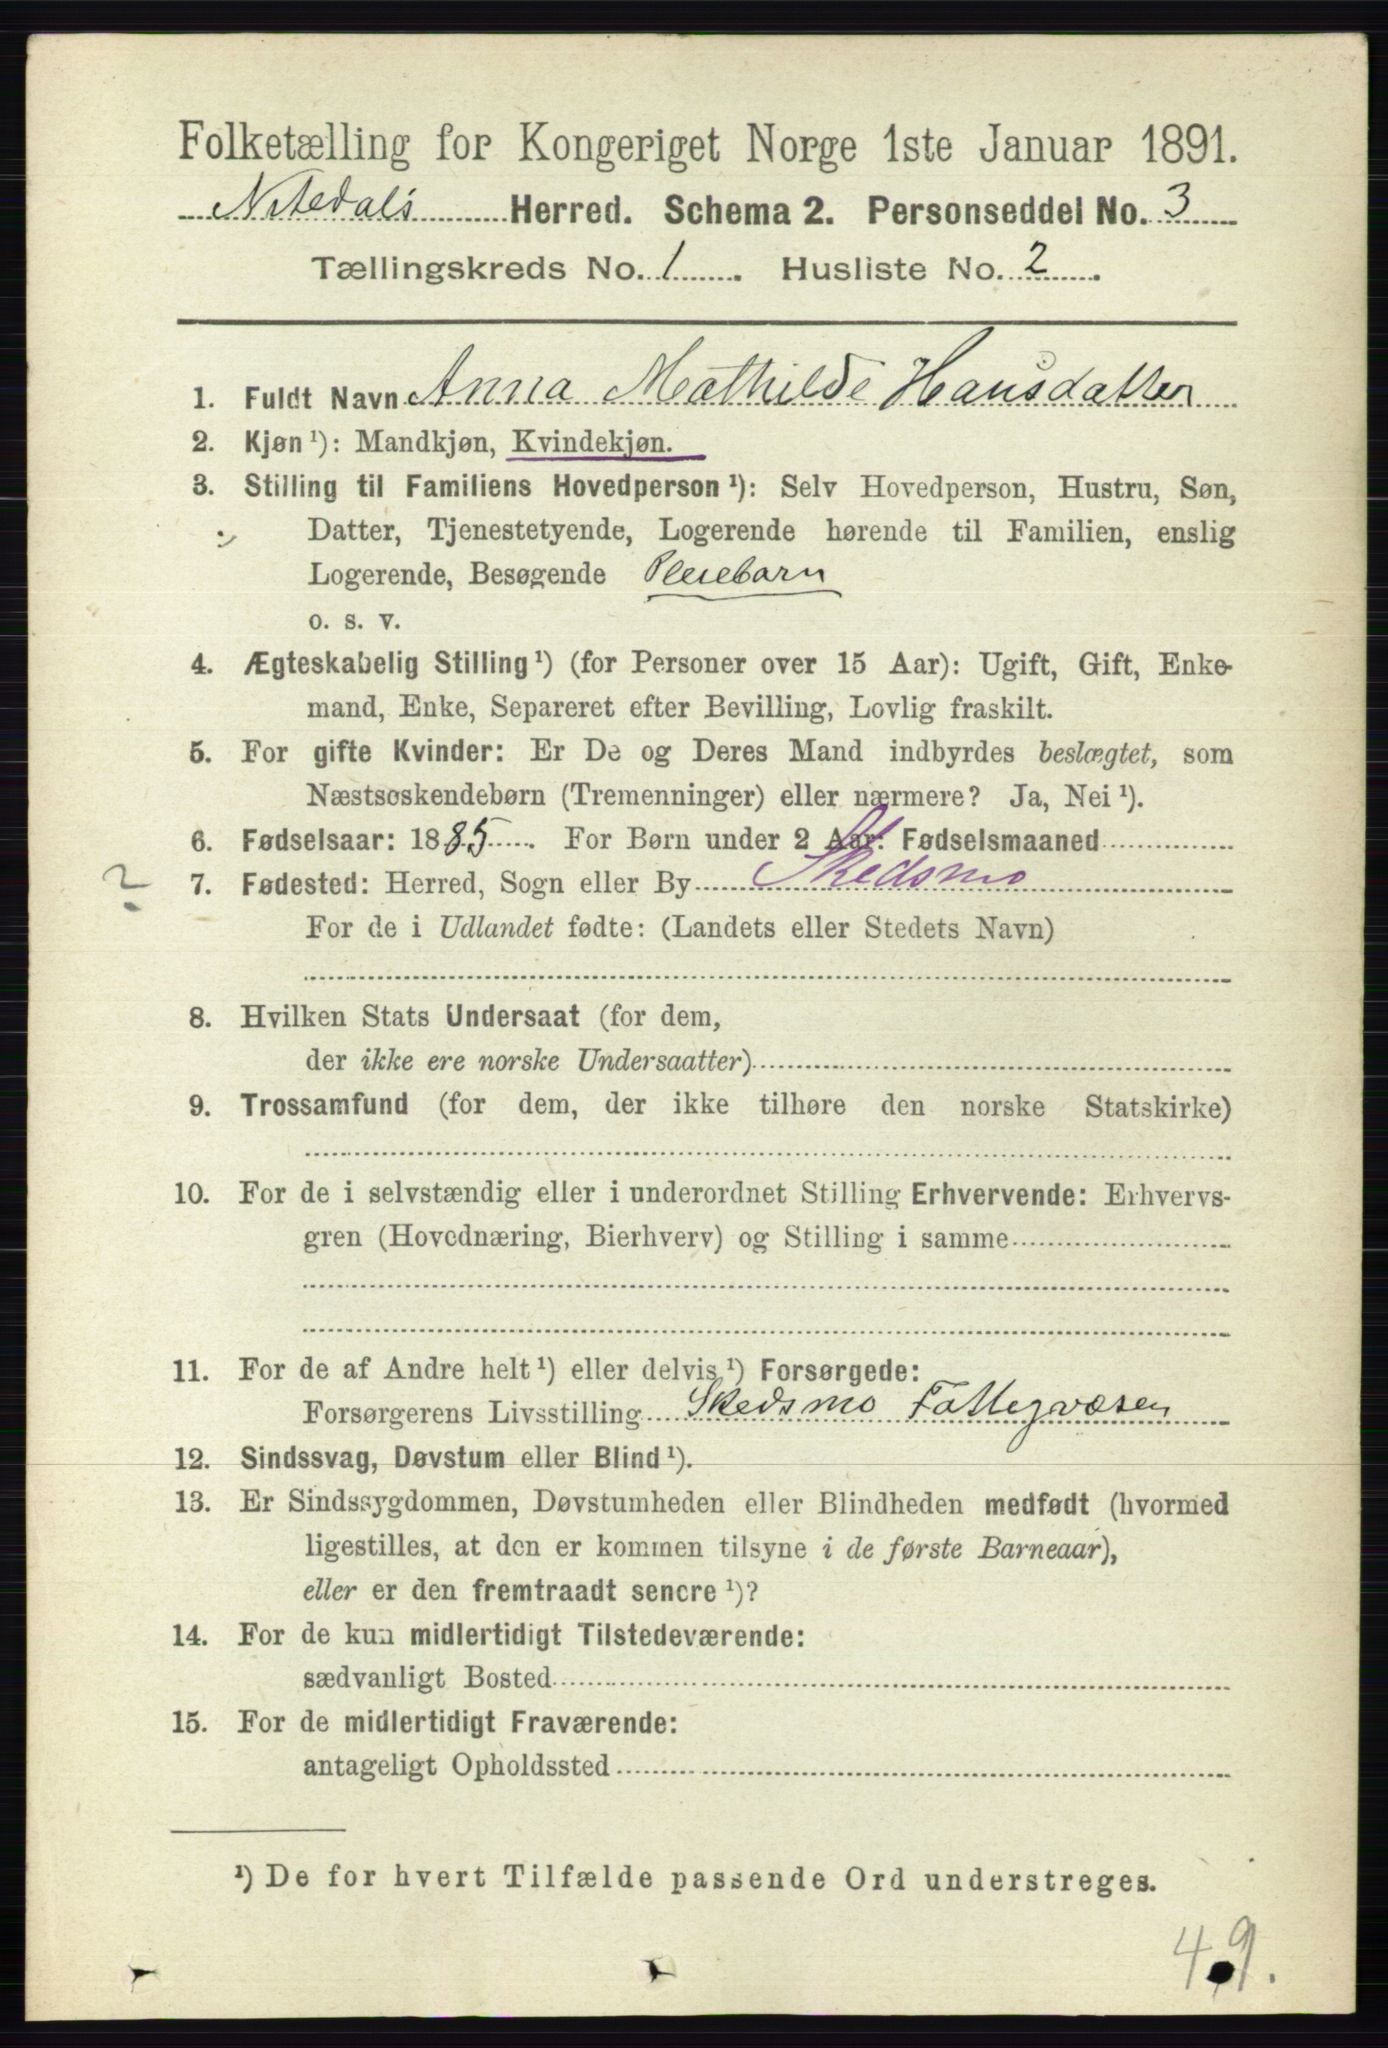 Folketælling for Kongeriget Norge 1ste Januar 1891.
Nitedals Herred. Schema 2. Personseddel No. 3
Tællingskreds No. 1. Husliste No. 2.
1. Fuldt Navn Anna Mathilde Hansdatter
2. Kjøn ¹): Mandkjøn, Kvindekjøn.
3. Stilling til Familiens Hovedperson ¹): Selv Hovedperson, Hustru, Søn,
Datter, Tjenestetyende, Logerende hørende til Familien, enslig
Logerende, Besøgende Pleiebarn
o. s. v.
4. Ægteskabelig Stilling ¹) (for Personer over 15 Aar): Ugift, Gift, Enke-
mand, Enke, Separeret efter Bevilling, Lovlig fraskilt.
5. For gifte Kvinder: Er De og Deres Mand indbyrdes beslægtet, som
Næstsøskendebørn (Tremenninger) eller nærmere? Ja, Nei ¹).
6. Fødselsaar: 1885. For Børn under 2 Aar: Fødselsmaaned
?
7. Fødested: Herred, Sogn eller By Skedsmo
For de i Udlandet fødte: (Landets eller Stedets Navn)
8. Hvilken Stats Undersaat (for dem,
der ikke ere norske Undersaatter)
9. Trossamfund (for dem, der ikke tilhøre den norske Statskirke)
10. For de i selvstændig eller i underordnet Stilling Erhvervende: Erhvervs-
gren (Hovednæring, Bierhverv) og Stilling i samme
11. For de af Andre helt ¹) eller delvis ¹) Forsørgede:
Forsørgerens Livsstilling Skedsmo Fattigvæsen
12. Sindssvag, Døvstum eller Blind ¹).
13. Er Sindssygdommen, Døvstumheden eller Blindheden medfødt (hvormed
ligestilles, at den er kommen tilsyne i de første Barneaar),
eller er den fremtraadt senere ¹)?
14. For de kun midlertidigt Tilstedeværende:
sædvanligt Bosted
15. For de midlertidigt Fraværende:
antageligt Opholdssted
¹) De for hvert Tilfælde passende Ord understreges.
49.